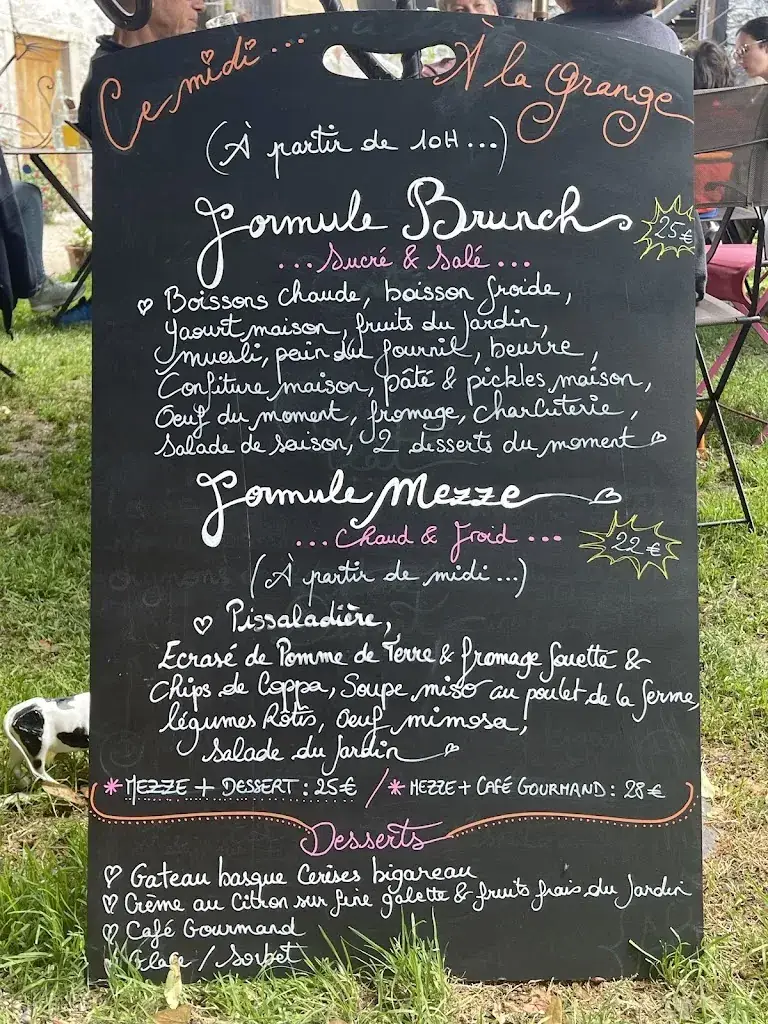 Ce midi... À la Grange
(À partir de 10H...)
Formule Brunch
25€
...Sucré & Salé...
Boissons chaude, boisson froide,
Yaourt maison, fruits du Jardin,
muesli, pain du fournil, beurre,
Confiture maison, pâté & pickles maison,
Oeuf du moment, fromage, charcuterie,
Salade de saison, 2 desserts du moment
Formule Mezze
...Chaud & Froid...
22€
(À partir de midi...)
Pissaladière,
Ecrasé de Pomme de Terre & fromage fouetté &
Chips de Coppa, Soupe miso au poulet de la ferme,
légumes Rôtis, Oeuf mimosa,
Salade du Jardin
*MEZZE + DESSERT : 25€ / *MEZZE + CAFÉ GOURMAND : 28€
Desserts
Gateau basque Cerises bigareau
Crème au Citron sur fine galette & fruits frais du Jardin
Café Gourmand
Glace / Sorbet